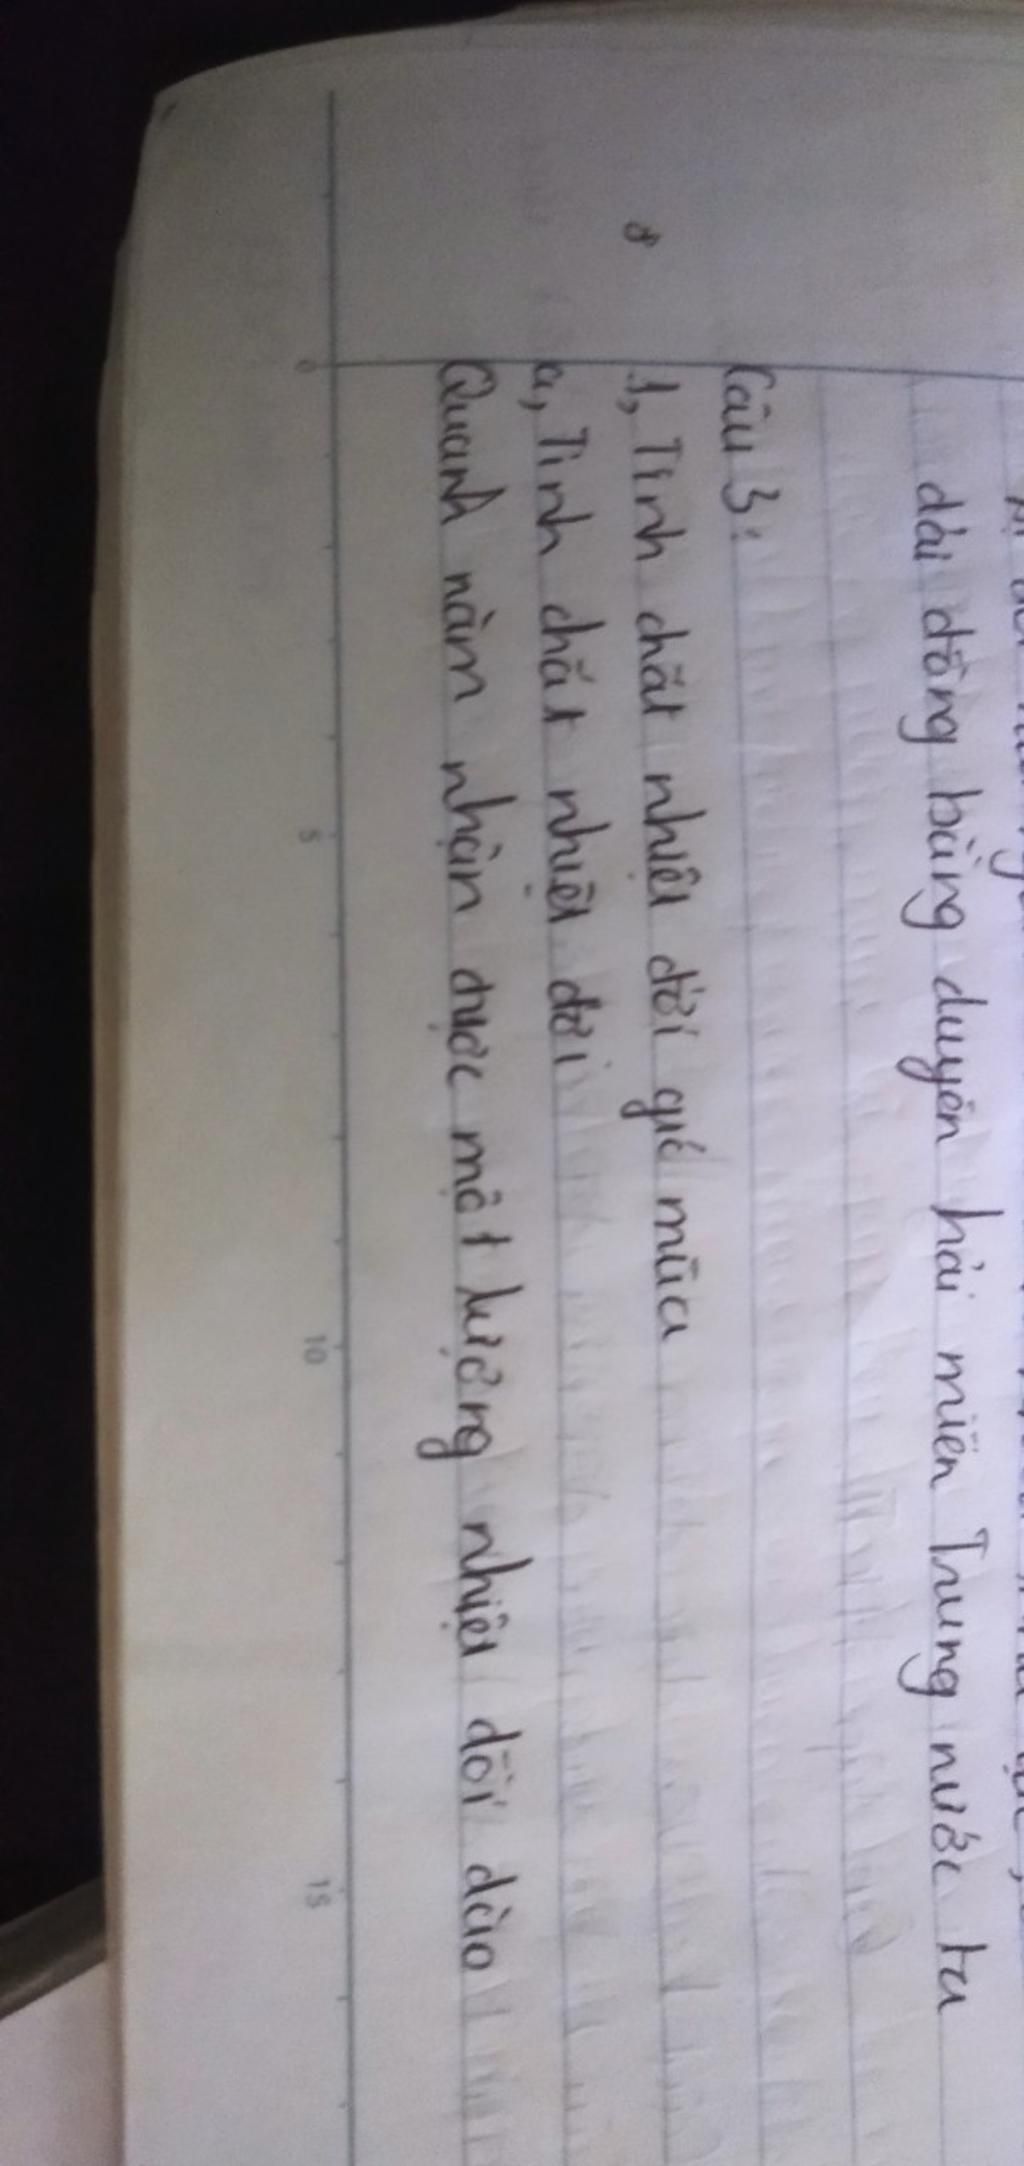 dải đồng bằng duyên hải miền Trung nước ta
Câu 3:
1, Tính chất nhiệt đới gió mùa
a, Tính chất nhiệt đới
Quanh năm nhận được một lượng nhiệt dồi dào
0 5 10 15